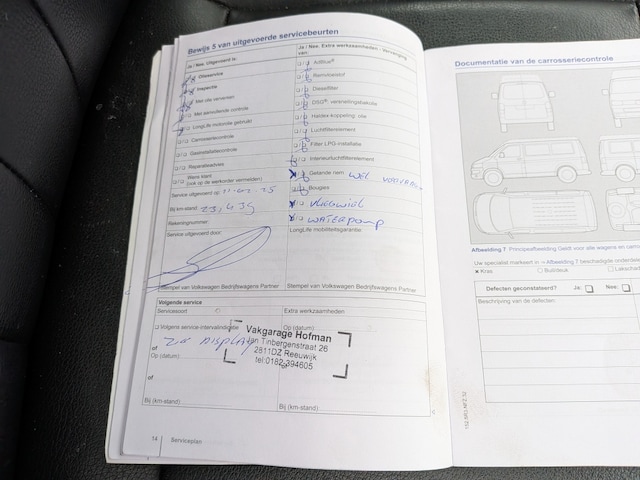 Bewijs 5 van uitgevoerde servicebeurten
Ja / Nee. Uitgevoerd is:
Olieservice
Inspectie
Met olie verversen
Met aanvullende controle
LongLife motorolie gebruikt
Carrosseriecontrole
Gasinstallatiecontrole
Reparatieadvies
Wens klant
(ook op de werkorder vermelden)
Service uitgevoerd op:
Bij km-stand:
Rekeningnummer:
Service uitgevoerd door:
Stempel van Volkswagen Bedrijfswagens Partner
Ja / Nee. Extra werkzaamheden - Vervanging
van:
AdBlue®
Remvloeistof
Dieselfilter
DSG® versnellingsbakolie
Haldex koppering: olie
Luchtfilterelement
Filter LPG-installatie
Interieurluchtfilterelement
Getande riem WEL
Bougies
Vliegwiel
WATERPOMP
LongLife mobiliteitsgarantie
Stempel van Volkswagen Bedrijfswagens Partner
Volgende service
Servicesoort
Extra werkzaamheden
Volgens service-intervalindicatie
Op (datum):
of
ZIE DISPLAY
Op (datum):
of
Bij (km-stand):
Bij (km-stand):
Vakgarage Hofman
Jan Tinbergenstraat 26
2811DZ Reeuwijk
tel:0182-394605
14 Serviceplan
Documentatie van de carrosseriecontrole
Afbeelding 7 Principeafbeelding: Geldt voor alle wagens en carross
Uw specialist markeert in → Afbeelding 7 beschadigde onderdelen
Kras
Buil/deuk
Lakschade
Defecten geconstateerd? Ja: Nee:
Beschrijving van de defecten: